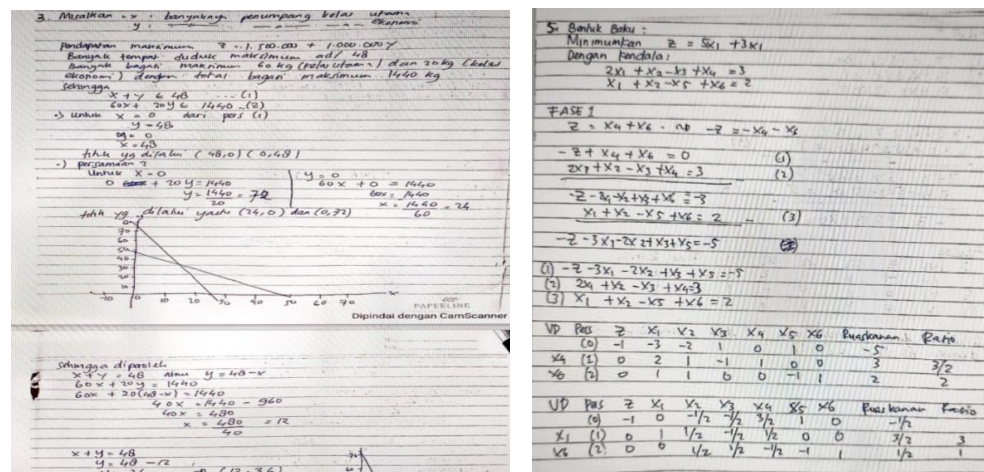 3. Misalkan = x : banyaknya penumpang kelas utama
y : ekonomi
Pendapatan maksimum z = 1.500.000 + 1.000.000 y
Banyak tempat duduk maksimum adl 48
Banyak bagasi maksimum 60 kg (kelas utama) dan 20 kg (kelas
ekonomi) dengan total bagasi maksimum 1440 kg
Sehingga
x + y ≤ 48 ... (1)
60x + 20y ≤ 1440 ... (2)
•) untuk x = 0 dari pers (1)
y = 48
y = 0
x = 48
titik yg dilalui (48,0) (0,48)
•) persamaan 2
Untuk x = 0
0 + 20 y = 1440
y = 1440 = 72
20
y = 0
60 x + 0 = 1440
60x = 1440
x = 1440 = 24
60
titik yg dilalui yaitu (24,0) dan (0,72)
70
60
50
40
30
20
10
-10 0 10 20 30 40 50 60 70 x
PAPERLINE
Dipindai dengan CamScanner
sehingga diperoleh
x + y = 48 atau y = 48 - x
60x + 20y = 1440
60x + 20(48-x) = 1440
40x = 1440 - 960
40x = 480
x = 480 = 12
40
x + y = 48
y = 48 - 12
5. Bentuk Baku :
Minimumkan z = 5x1 + 3x1
Dengan kendala:
2x1 + x2 - x3 + x4 = 3
x1 + x2 - x5 + x6 = 2
FASE 1
z = x4 + x6 - -z = -x4 - x6
-z + x4 + x6 = 0 (1)
2x1 + x2 - x3 + x4 = 3 (2)
-z - 2x1 - x2 + x3 + x6 = -3
x1 + x2 - x5 + x6 = 2 (3)
-z - 3x1 - 2x2 + x3 + x5 = -5
(1) -z - 3x1 - 2x2 + x3 + x5 = -5
(2) 2x1 + x2 - x3 + x4 = 3
(3) x1 + x2 - x5 + x6 = 2
VD Pers z x1 x2 x3 x4 x5 x6 Ruas kanan Ratio
(0) -1 -3 -2 1 0 1 0 -5
x4 (1) 0 2 1 -1 1 0 0 3 3/2
x6 (2) 0 1 1 0 0 -1 1 2 2
VD Pers z x1 x2 x3 x4 x5 x6 Ruas kanan Ratio
(0) -1 0 -1/2 -1/2 3/2 1 0 -1/2
x1 (1) 0 1 1/2 -1/2 1/2 0 0 3/2 3
x6 (2) 0 0 1/2 1/2 -1/2 -1 1 1/2 1